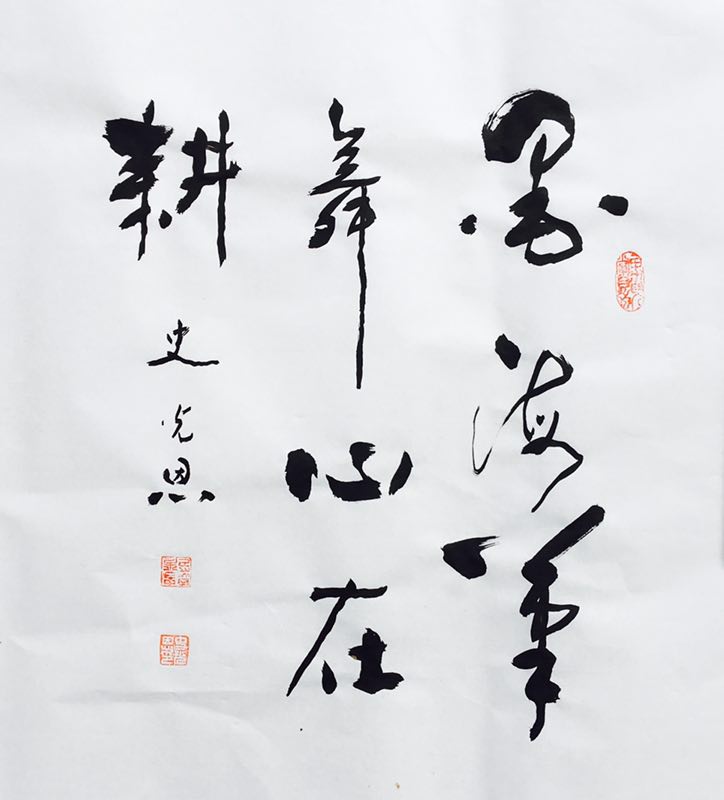 墨海笔
舞心在
耕
史光恩